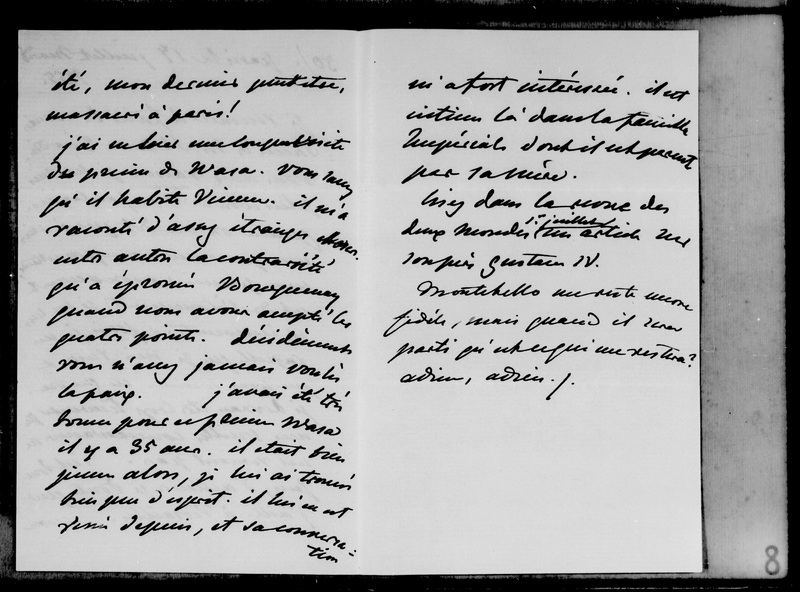 été, mon dernier peut être,
massacré à paris !
j'ai eu hier une longue visite
du prince de Wasa. vous savez
qu'il habite Vienne. il m'a
raconté d'assez étranges choses.
entre autres la contrariété
qu'a éprouvé Bourqueney
quand nous avons accepté les
quatre points. décidément
vous n'avez jamais voulu
la paix. j'avais été très
bonne pour ce prince Wasa
il y a 35 ans. il était bien
jeune alors, je lui ai trouvé
bien peu d'esprit. il lui en est
venu depuis, et sa conversa-
tion
m'a fort intéressée. il est
intime là dans la famille
Impériale dont il est parent
par sa mère.
lisez dans la revue des
deux mondes 1er juillet un article sur
son père Gustave IV.
Montebello me reste encore
fidèle, mais quand il sera
parti qu'est ce qui me restera ?
adieu, adieu.
8